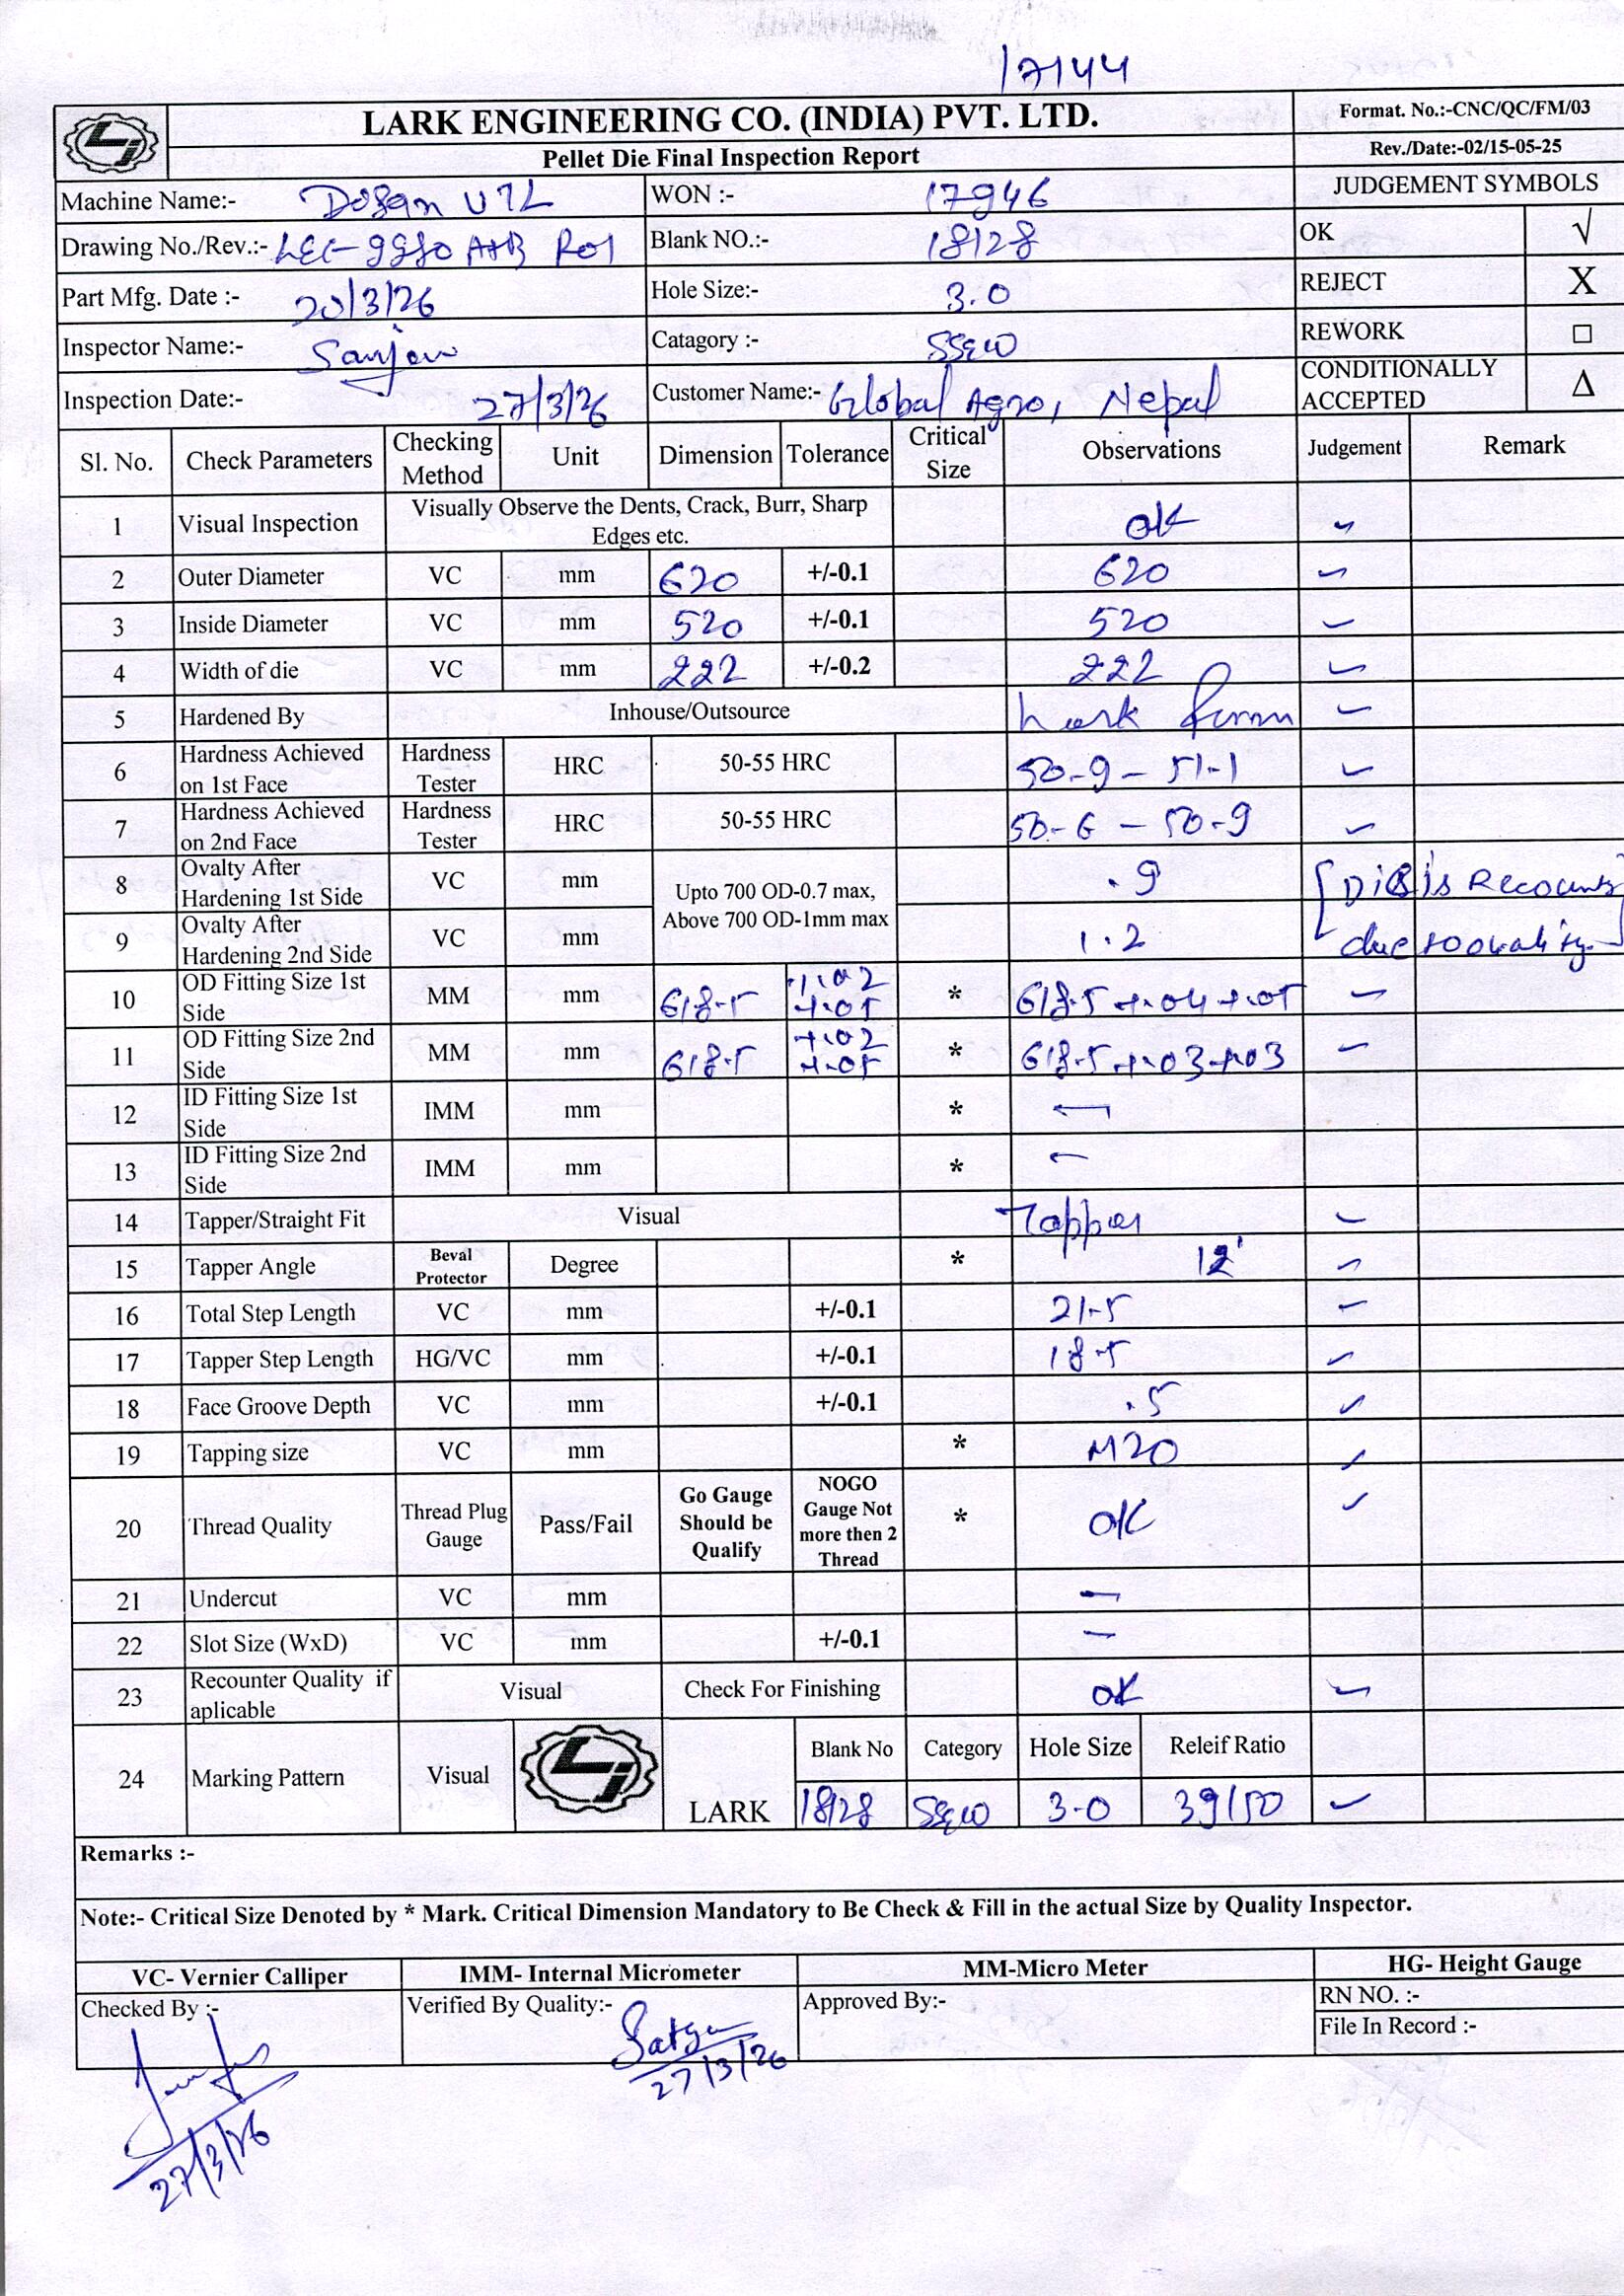 17144
LARK ENGINEERING CO. (INDIA) PVT. LTD.
Format. No.:-CNC/QC/FM/03
Pellet Die Final Inspection Report
Rev./Date:-02/15-05-25
Machine Name:- WON :- 17946 JUDGEMENT SYMBOLS
Drawing No./Rev.:- LEC-9980 A+B R01 Blank NO.:- 18128 OK √
Part Mfg. Date :- 20/3/26 Hole Size:- 3.0 REJECT X
Inspector Name:- Sanjeev Catagory :- REWORK □
Inspection Date:- 27/3/26 Customer Name:- Global Agro, Nepal CONDITIONALLY ACCEPTED Δ
Sl. No. Check Parameters Checking Method Unit Dimension Tolerance Critical Size Observations Judgement Remark
1 Visual Inspection Visually Observe the Dents, Crack, Burr, Sharp Edges etc. OK ✓
2 Outer Diameter VC mm 620 +/-0.1 620 ✓
3 Inside Diameter VC mm 520 +/-0.1 520 ✓
4 Width of die VC mm 222 +/-0.2 222 ✓
5 Hardened By Inhouse/Outsource Lark ✓
6 Hardness Achieved on 1st Face Hardness Tester HRC 50-55 HRC 50.9 – 51.1 ✓
7 Hardness Achieved on 2nd Face Hardness Tester HRC 50-55 HRC 50.6 – 50.9 ✓
8 Ovalty After Hardening 1st Side VC mm Upto 700 OD-0.7 max, Above 700 OD-1mm max .9 Die is Recounter
9 Ovalty After Hardening 2nd Side VC mm 1.2 due to ovality.
10 OD Fitting Size 1st Side MM mm 618.5 +.02 +.05 * 618.5 +.04 +.05 ✓
11 OD Fitting Size 2nd Side MM mm 618.5 +.02 +.05 * 618.5 +.03 +.03 ✓
12 ID Fitting Size 1st Side IMM mm * —
13 ID Fitting Size 2nd Side IMM mm * —
14 Tapper/Straight Fit Visual Tapper ✓
15 Tapper Angle Beval Protector Degree * 12° ✓
16 Total Step Length VC mm +/-0.1 21.5 ✓
17 Tapper Step Length HG/VC mm +/-0.1 18.5 ✓
18 Face Groove Depth VC mm +/-0.1 .5 ✓
19 Tapping size VC mm * M20 ✓
20 Thread Quality Thread Plug Gauge Pass/Fail Go Gauge Should be Qualify NOGO Gauge Not more then 2 Thread * OK ✓
21 Undercut VC mm —
22 Slot Size (WxD) VC mm +/-0.1 —
23 Recounter Quality if aplicable Visual Check For Finishing OK ✓
24 Marking Pattern Visual LARK Blank No Category Hole Size Releif Ratio
18128 3.0 39/50 ✓
Remarks :-
Note:- Critical Size Denoted by * Mark. Critical Dimension Mandatory to Be Check & Fill in the actual Size by Quality Inspector.
VC- Vernier Calliper IMM- Internal Micrometer MM-Micro Meter HG- Height Gauge
Checked By :- Verified By Quality:- Satya Approved By:- RN NO. :-
File In Record :-
27/3/26
27/3/26